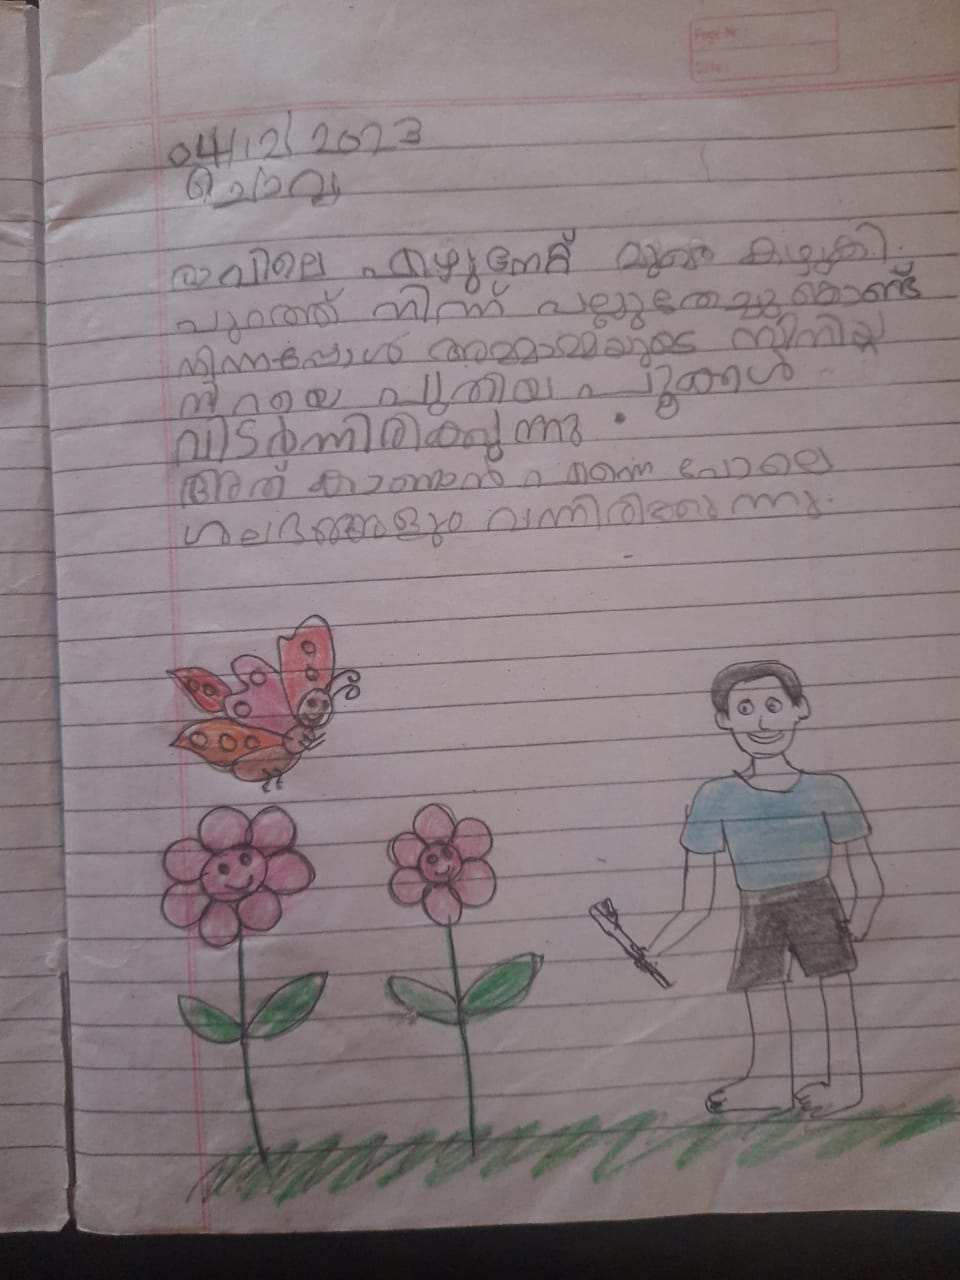 Page Nr :
Date :
04/12/2023
ചൊവ്വ
രാവിലെ എഴുന്നേറ്റ് മുഖം കഴുകി.
പുറത്ത് നിന്ന് പല്ലുതേച്ചുകൊണ്ട്
നിന്നപ്പോൾ അമ്മാമ്മയുടെ സിനിയ
നിറയെ പുതിയ പൂക്കൾ
വിടർന്നിരിക്കുന്നു.
അത് കാണാൻ എന്നെ പോലെ
ശലഭങ്ങളും വന്നിരിക്കുന്നു.